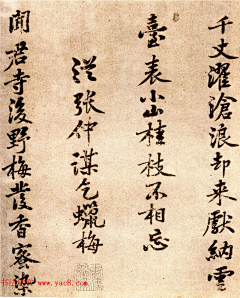 千丈濯滄浪却来獻納雲
臺表小山桂枝不相忘
從張仲謀乞蠟梅
聞君寺後野梅發香蜜染
www.yac8.com